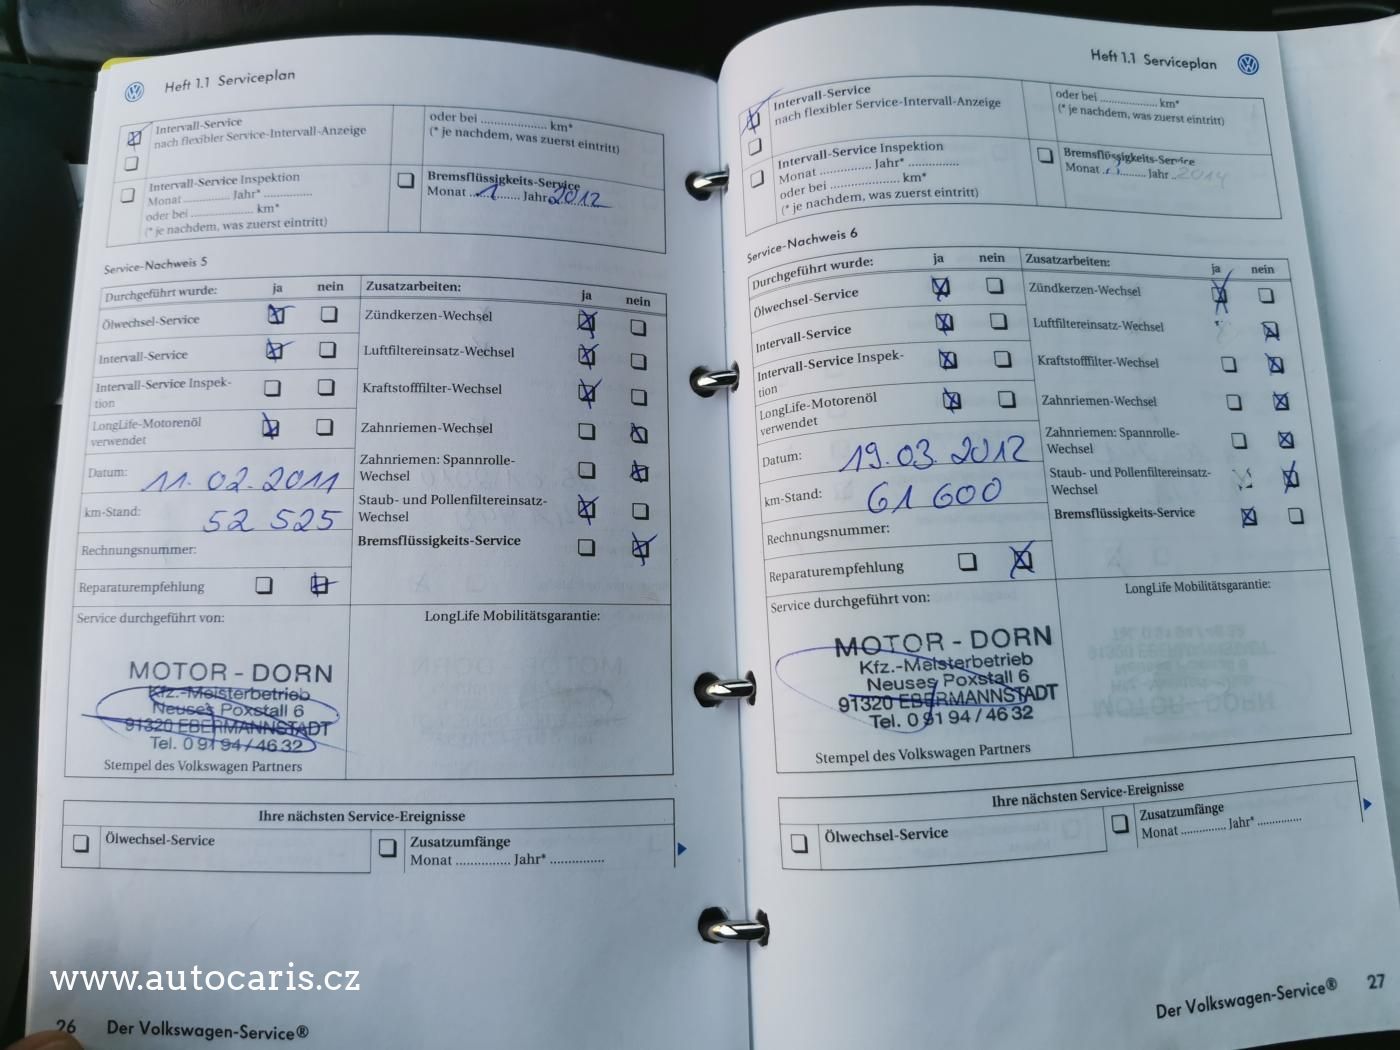 Heft 1.1 Serviceplan
Intervall-Service
nach flexibler Service-Intervall-Anzeige
oder bei ..................... km*
(* je nachdem, was zuerst eintritt)
Intervall-Service Inspektion
Monat .............. Jahr* ...............
oder bei .................... km*
(* je nachdem, was zuerst eintritt)
Bremsflüssigkeits-Service
Monat ..1....... Jahr 2012
Service-Nachweis 5
Durchgeführt wurde: ja nein
Ölwechsel-Service
Intervall-Service
Intervall-Service Inspek-
tion
LongLife-Motorenöl
verwendet
Datum: 11. 02. 2011
km-Stand: 52 525
Rechnungsnummer:
Reparaturempfehlung
Zusatzarbeiten: ja nein
Zündkerzen-Wechsel
Luftfiltereinsatz-Wechsel
Kraftstofffilter-Wechsel
Zahnriemen-Wechsel
Zahnriemen: Spannrolle-
Wechsel
Staub- und Pollenfiltereinsatz-
Wechsel
Bremsflüssigkeits-Service
Service durchgeführt von:
MOTOR - DORN
Kfz.-Meisterbetrieb
Neuses Poxstall 6
91320 EBERMANNSTADT
Tel. 0 91 94 / 46 32
Stempel des Volkswagen Partners
LongLife Mobilitätsgarantie:
Ihre nächsten Service-Ereignisse
Ölwechsel-Service
Zusatzumfänge
Monat ................ Jahr* ................
www.autocaris.cz
26 Der Volkswagen-Service®
Heft 1.1 Serviceplan
Intervall-Service
nach flexibler Service-Intervall-Anzeige
oder bei .................. km*
(* je nachdem, was zuerst eintritt)
Intervall-Service Inspektion
Monat .............. Jahr* ...............
oder bei ..................... km*
(* je nachdem, was zuerst eintritt)
Bremsflüssigkeits-Service
Monat ............ Jahr ..2014
Service-Nachweis 6
Durchgeführt wurde: ja nein
Ölwechsel-Service
Intervall-Service
Intervall-Service Inspek-
tion
LongLife-Motorenöl
verwendet
Datum: 19. 03. 2012
km-Stand: 61 600
Rechnungsnummer:
Reparaturempfehlung
Zusatzarbeiten: ja nein
Zündkerzen-Wechsel
Luftfiltereinsatz-Wechsel
Kraftstofffilter-Wechsel
Zahnriemen-Wechsel
Zahnriemen: Spannrolle-
Wechsel
Staub- und Pollenfiltereinsatz-
Wechsel
Bremsflüssigkeits-Service
Service durchgeführt von:
MOTOR - DORN
Kfz.-Meisterbetrieb
Neuses Poxstall 6
91320 EBERMANNSTADT
Tel. 0 91 94 / 46 32
Stempel des Volkswagen Partners
LongLife Mobilitätsgarantie:
Ihre nächsten Service-Ereignisse
Ölwechsel-Service
Zusatzumfänge
Monat .............. Jahr* ..............
Der Volkswagen-Service® 27